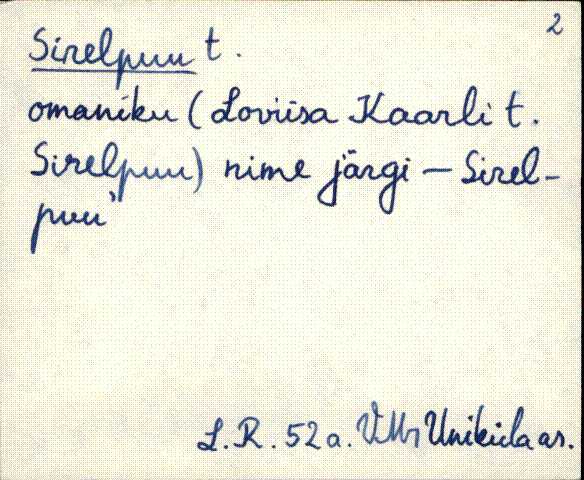 2
Sirelpuu t.
omaniku (Loviisa Kaarli t.
Sirelpuu) nime järgi – Sirel-
puu'
L. R. 52 a. VMr Uniküla as.